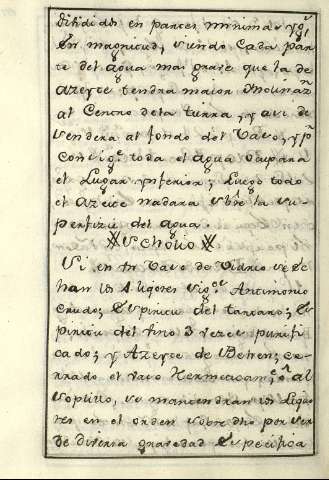 dibididas en partes minimas yg.l
en magnitud, siendo cada par
te del agua mas grave que la de
azeyte tendra maior Inclinaz.n
al Centro dela tierra, y asi de
senderá al fondo del Vaso, y p.r
consig.te toda el agua ocupara
el Lugar ynferior; Luego todo
el azeite nadara sobre la su
perfizie del agua.
Scholio
Si en un Vaso de Vidrio se e
han los 4 liqores sig.tes Antimonio
crudo; Espiritu del tartaro; Es
piritu del vino 3 vezes purifi
cado; y Azeyte de Behen; ce
rrado el vaso Hermeticam.te al
soplillo, se mantendran los Liquo
res en el orden sobre dho por ser
de diversa gravedad Espesifica